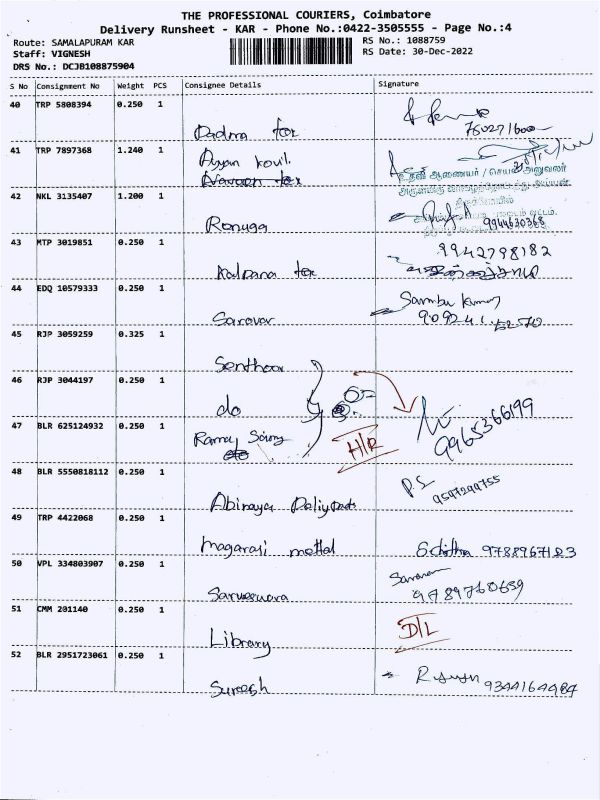 THE PROFESSIONAL COURIERS, Coimbatore
Delivery Runsheet - KAR - Phone No.:0422-3505555 - Page No.:4
Route: SAMALAPURAM KAR
RS No.: 1088759
Staff: VIGNESH
RS Date: 30-Dec-2022
DRS No.: DCJB108875904
S No Consignment No Weight PCS Consignee Details Signature
40 TRP 5808394 0.250 1
Padma tex
41 TRP 7897368 1.240 1 Ayyan kovil.
Naveen tex
42 NKL 3135407 1.200 1
Renuga 9944630368
43 MTP 3019851 0.250 1 9942798182
Kalpana tex
44 EDQ 10579333 0.250 1 Sambu kumar
Sarovar
45 RJP 3059259 0.325 1
Senthoor
46 RJP 3044197 0.250 1
do
47 BLR 625124932 0.250 1 H/R 9965366199
48 BLR 5550818112 0.250 1 P.S 9597299755
Abinaya Poliypack
49 TRP 4422068 0.250 1
Magaraji mettal 9788967123
50 VPL 334803907 0.250 1 Saravanan
Sarveswara 9789760659
51 CMM 201140 0.250 1 D/L
Library
52 BLR 2951723061 0.250 1
Suresh 9344164484